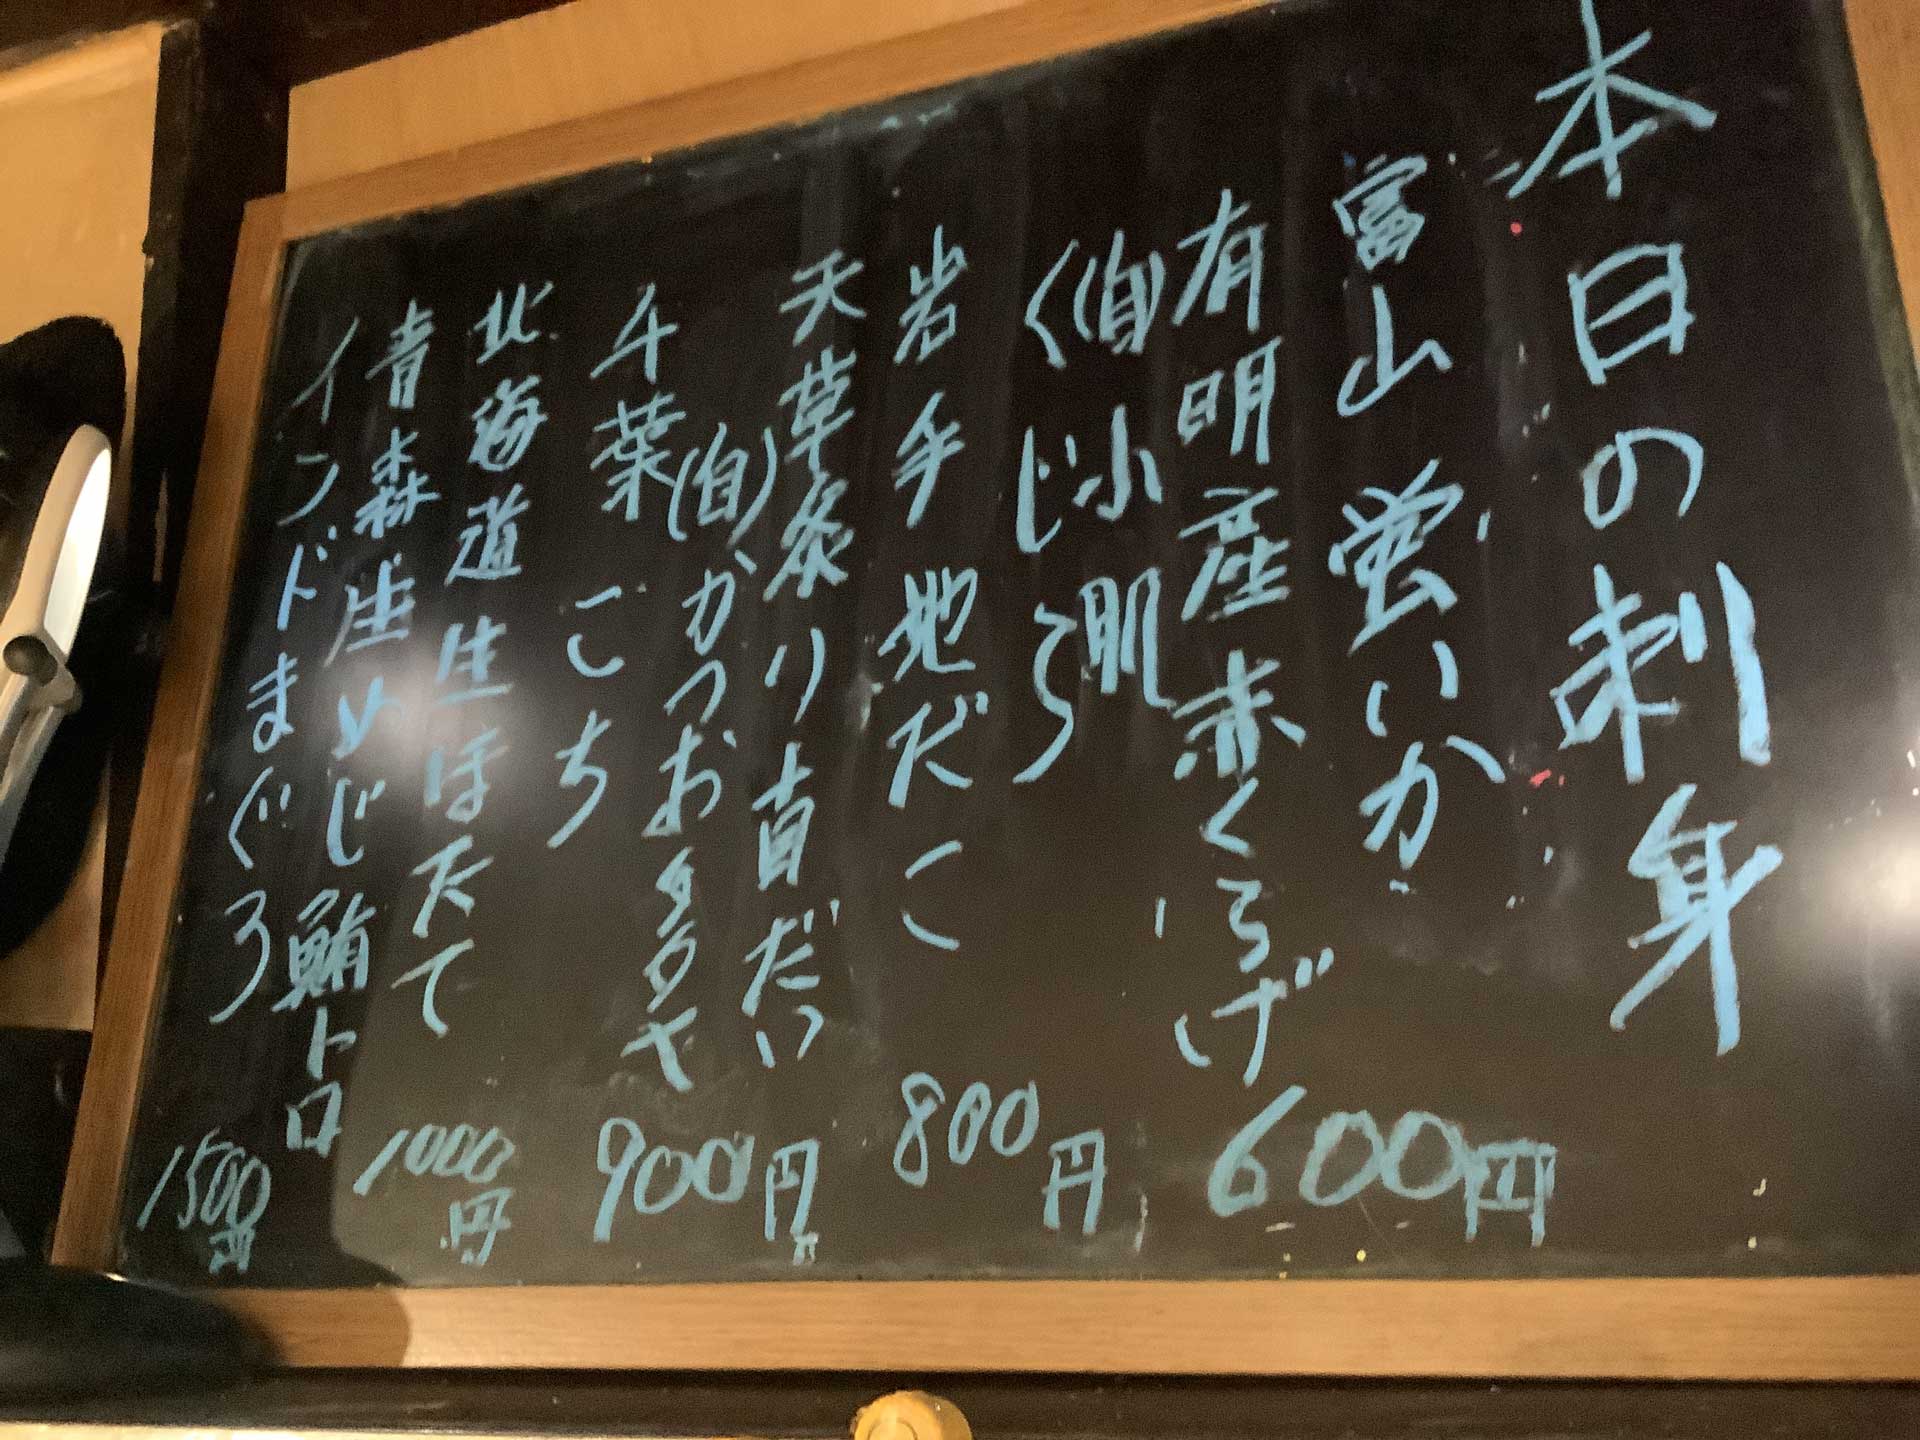 本日の刺身
富山 蛍いか
有明産赤くらげ
(自)小肌
くじら
600円
岩手 地だこ
800円
天草灸り真だい
(自)かつおタタキ
千葉 こち
900円
北海道 生ほたて
1000円
青森産めじ鮪トロ
インドまぐろ
1500円